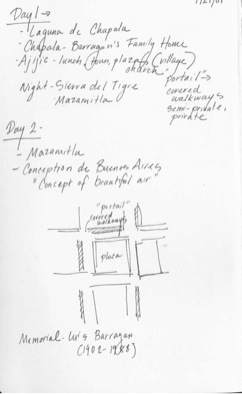 Day 1 →
- Laguna de Chapala
- Chapala - Barragan's Family Home
- Ajijic - lunch (town, plazas, church) (village)
"portail" →
covered
walkways
semi-private,
private
Night - Sierra del Tigre
Mazamitla
Day 2.
- Mazamitla
- Conception de Buenos Aires
"Concept of beautiful air"
"portail"
covered
walkways
plaza
Memorial - Luis Barragan
(1902 - 1988)